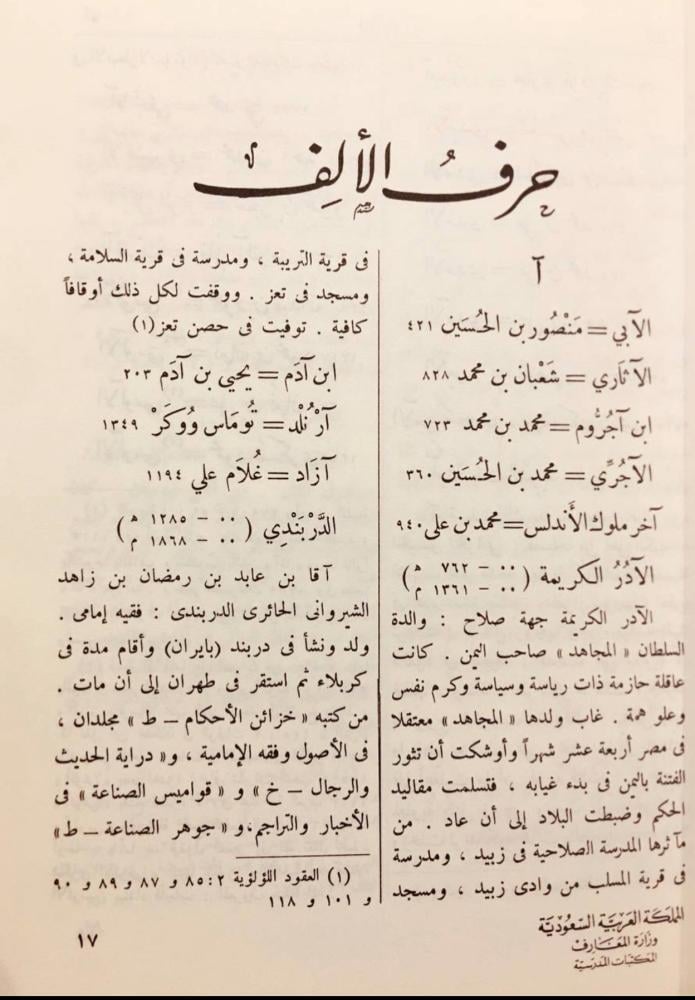 حرفُ الألِف
آ
الآبي = مَنْصُور بن الحُسَين ٤٢١
الآثاري = شَعْبان بن محمد ٨٢٨
ابن آجُرُّوم = محمد بن محمد ٧٢٣
الآجُرِّي = محمد بن الحُسَين ٣٦٠
آخر ملوك الأندلس = محمد بن على ٩٤٠
الآدُرُ الكريمة ( ٠٠ – ٧٦٢ ﻫ / ٠٠ – ١٣٦١ م )
الآدر الكريمة جهة صلاح : والدة
السلطان « المجاهد » صاحب اليمن . كانت
عاقلة حازمة ذات رياسة وسياسة وكرم نفس
وعلو همة . غاب ولدها « المجاهد » معتقلا
فى مصر أربعة عشر شهراً وأوشكت أن تثور
الفتنة باليمن فى بدء غيابه ، فتسلمت مقاليد
الحكم وضبطت البلاد إلى أن عاد . من
مآثرها المدرسة الصلاحية فى زبيد ، ومدرسة
فى قرية المسلب من وادى زبيد ، ومسجد
فى قرية التريبة ، ومدرسة فى قرية السلامة ،
ومسجد فى تعز . ووقفت لكل ذلك أوقافاً
كافية . توفيت فى حصن تعز(١)
ابن آدَم = يحيي بن آدَم ٢٠٣
آرْنُلْد = تُوماس وُوكَرْ ١٣٤٩
آزَاد = غُلَام علي ١١٩٤
الدَّرْبَنْدِي ( ٠٠ – ١٢٨٥ ﻫ / ٠٠ – ١٨٦٨ م )
آقا بن عابد بن رمضان بن زاهد
الشيروانى الحائرى الدربندى : فقيه إمامى .
ولد ونشأ فى دربند (بايران) وأقام مدة فى
كربلاء ثم استقر فى طهران إلى أن مات .
من كتبه « خزائن الأحكام – ط » مجلدان ،
فى الأصول وفقه الإمامية ، و« دراية الحديث
والرجال – خ » و « قواميس الصناعة » فى
الأخبار والتراجم،و « جوهر الصناعة – ط»
(١) العقود اللؤلؤية ٢ : ٨٥ و ٨٧ و ٨٩ و ٩٠
و ١٠١ و ١١٨
المملكة العَربيَّة السَّعُوديَّة
وزَارة المعَارف
المكتبات المدرسيَّة
١٧